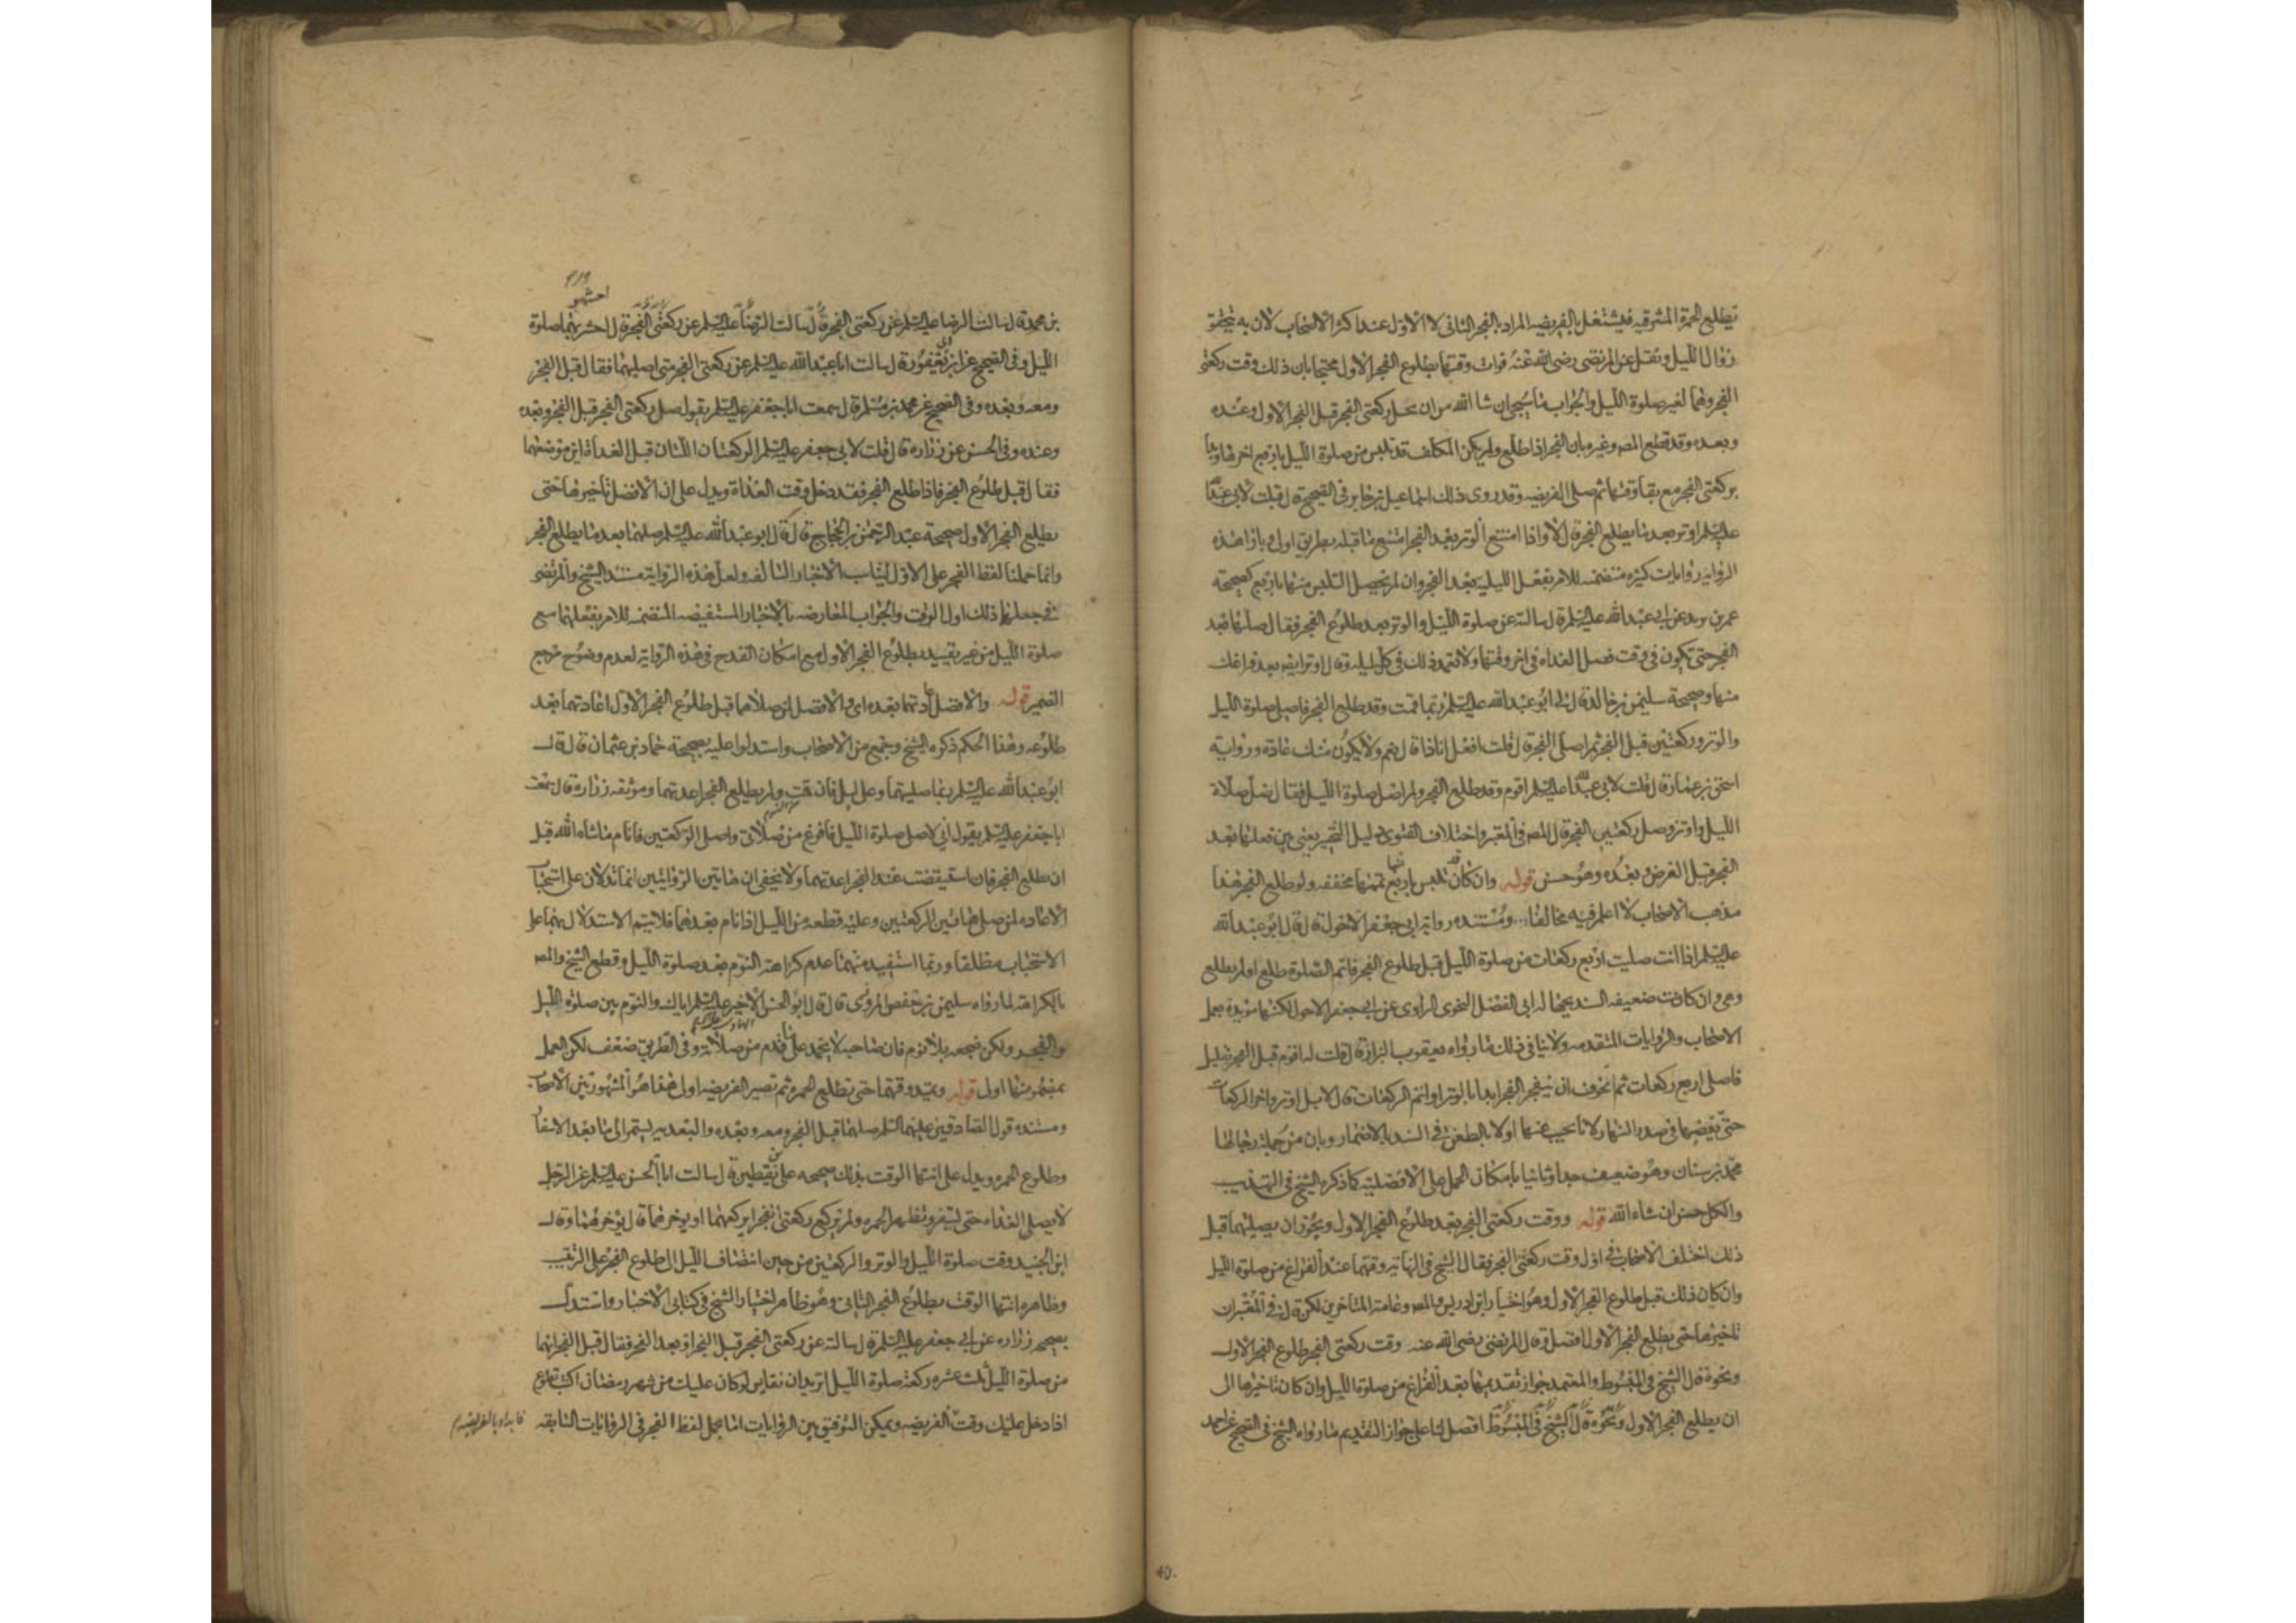 تطلع الحمرة المشرقيه فيشتغل بالفريضه المراد بالفجر الثانى لا الاول عند اكثر الاصحاب لان به يتحقق
زوال الليل ونقل عن المرتضى رضى الله عنه فوات وقتها بطلوع الفجر الاول محتجا بان ذلك وقت ركعتى
الفجر وهما لغير صلوة الليل والجواب ما سيجئ ان شا الله من ان محل ركعتى الفجر قبل الفجر الاول وعنده
وبعده وقد قطع المص وغيره بان الفجر اذا طلع ولم يكن المكلف قد تلبس من صلوة الليل باربع اخرها وبدا
بركعتى الفجر مع بقا وقتها ثم صلى الفريضه وقد روى ذلك اسماعيل بن جابر فى الصحيح قال قلت لابى عبد الله
عليه السلم اوتر بعد ما يطلع الفجر قال لا واذا امتنع الوتر بعد الفجر امتنع ما قبله بطريق اولى وبازا هذه
الروايه روايات كثيره متضمنه للامر بفعل الليليه بعد الفجر وان لم يحصل التلبس منها باربع كصحيحة
عمر بن يزيد عن ابى عبد الله عليه السلم قال سالته عن صلوة الليل والوتر بعد طلوع الفجر فقال صلها بعد
الفجر حتى تكون فى وقت فصل الغداه فى اخر وقتها ولا تعمد ذلك فى كل ليله وقال اوتر ايضا بعد فراغك
منها وصحيحة سليمن بن خالد قال قال لى ابو عبد الله عليه السلم ربما قمت وقد طلع الفجر فاصلى صلوة الليل
والوتر وركعتين قبل الفجر ثم اصلى الفجر قال قلت افعل انا ذا قال نعم ولا يكون منك عادة ورواية
اسحق بن عمار قال قلت لابى عبد الله عليه السلم اقوم وقد طلع الفجر ولم اصل صلوة الليل فقال صل صلاة
الليل واوتر وصل ركعتين الفجر قال المص فى المعتبر واختلاف الفتوى دليل التخيير يعنى بين فعلها بعد
الفجر قبل الفرض وبعده وهو حسن قوله وان كان قد تلبس باربع تممها مخففه ولو طلع الفجر هذا
مذهب الاصحاب لا اعلم فيه مخالفا ومستنده رواية ابى جعفر الاحول قال قال ابو عبد الله
عليه السلم اذا انت صليت اربع ركعات من صلوة الليل قبل طلوع الفجر فاتم الصلوة طلع او لم يطلع
وهى وان كانت ضعيفه السند بجهالة ابى الفضل النحوى الراوى عن ابى جعفر الاحول لكنها مؤيدة بعمل
الاصحاب والروايات المتقدمه ولا ينافى ذلك ما رواه يعقوب البزاز قال قلت له اقوم قبل الفجر بقليل
فاصلى اربع ركعات ثم اتخوف ان ينفجر الفجر ابدا بالوتر او اتم الركعات قال لا بل اوتر واخر الركعات
حتى تقضيها فى صدر النهار لانا نجيب عنها اولا بالطعن فى السند بالاضمار وبان من جملة رجالها
محمد بن سنان وهو ضعيف جدا وثانيا بامكان الحمل على الافضلية كما ذكره الشيخ فى التهذيب
والكل حسن ان شاء الله قوله ووقت ركعتى الفجر بعد طلوع الفجر الاول ويجوز ان يصليهما قبل
ذلك اختلف الاصحاب فى اول وقت ركعتى الفجر فقال الشيخ فى النهاية وقتهما عند الفراغ من صلوة الليل
وان كان ذلك قبل طلوع الفجر الاول وهو اختيار ابن ادريس والمص وعامة المتاخرين لكن قال فى المعتبر ان
تاخيرها حتى يطلع الفجر الاول افضل وقال المرتضى رضى الله عنه وقت ركعتى الفجر طلوع الفجر الاول
ونحوه قال الشيخ فى المبسوط والمعتمد جواز تقديمها بعد الفراغ من صلوة الليل وان كان تاخيرها الى
ان يطلع الفجر الاول ونحوه قال الشيخ فى المبسوط افضل لنا على جواز التقديم ما رواه الشيخ فى الصحيح عن احمد
بن محمد قال سالت الرضا عليه السلم عن ركعتى الفجر قال سالت الرضا عليه السلم عن ركعتى الفجر قال احشر بهما صلوة
احشهو
الليل وفى الصحيح عن ابن ابى يعفور قال سالت ابا عبد الله عليه السلم عن ركعتى الفجر متى اصليهما فقال قبل الفجر
ومعه وبعده وفى الصحيح عن محمد بن مسلم قال سمعت ابا جعفر عليه السلم يقول صل ركعتى الفجر قبل الفجر وبعده
وعنده وفى الحسن عن زراره قال قلت لابى جعفر عليه السلم الركعتان اللتان قبل الغداة اين موضعهما
فقال قبل طلوع الفجر فاذا طلع الفجر فقد دخل وقت الغداة ويدل على ان الافضل تاخيرها حتى
يطلع الفجر الاول صحيحة عبد الرحمن بن الحجاج قال قال ابو عبد الله عليه السلم صلهما بعد ما يطلع الفجر
وانما حملنا لفظ الفجر على الاول ليناسب الاخبار السالفه ولعل هذه الرواية مستند الشيخ والمرتضى
فى جعلهما ذلك اول الوقت والجواب المعارضه بالاخبار المستفيضه المتضمنه للامر بفعلهما مع
صلوة الليل من غير تقييد بطلوع الفجر الاول مع امكان القدح فى هذه الرواية لعدم وضوح مرجع
الضمير قوله والافضل اعادتهما بعده اى والافضل لمن صلاهما قبل طلوع الفجر الاول اعادتهما بعد
طلوعه وهذا الحكم ذكره الشيخ وجمع من الاصحاب واستدلوا عليه بصحيحة حماد بن عثمان قال قال
ابو عبد الله عليه السلم ربما صليتهما وعلى ليل فان قمت ولم يطلع الفجر اعدتهما وموثقه زراره قال سمعت
ابا جعفر عليه السلم يقول انى لاصلى صلوة الليل فافرغ من صلاتى واصلى الركعتين فانام ما شاء الله قبل
ان يطلع الفجر فان استيقضت عند الفجر اعدتهما ولا يخفى ان هاتين الروايتين انما تدلان على استحباب
الاعاده لمن صلى هاتين الركعتين وعليه قطعه من الليل اذا نام بعدهما فلا يتم الاستدلال بهما على
الاستحباب مطلقا وربما استفيد منهما عدم كراهة النوم بعد صلوة الليل وقطع الشيخ والمص
بالكراهة لما رواه سليمن بن حفص المروزى قال قال ابو الحسن الاخير عليه السلم اياك والنوم بين صلوة الليل
والفجر ولكن ضجعه بلا نوم فان صاحبه لا يحمد على ما قدم من صلاته وفى الطريق ضعف لكن العمل
بمضمونها اولى قوله ويمتد وقتهما حتى تطلع الحمره ثم تصير الفريضه اولى هذا هو المشهور بين الاصحاب
ومستنده قول الصادقين عليهما السلم صلهما قبل الفجر ومعه وبعده والبعديه يستمر الى ما بعد الاسفار
وطلوع الحمره ويدل على انتها الوقت بذلك صحيحه على بن يقطين قال سالت ابا الحسن عليه السلم عن الرجل
لا يصلى الغداه حتى يسفر وتظهر الحمره ولم يركع ركعتى الفجر ايركعهما او يوخرهما قال يوخرهما وقال
ابن الجنيد وقت صلوة الليل والوتر والركعتين من حين انتصاف الليل الى طلوع الفجر على الترتيب
وظاهره انتها الوقت بطلوع الفجر الثانى وهو ظاهر اختيار الشيخ فى كتابى الاخبار واستدل
بصحيحه زراره عن ابى جعفر عليه السلم قال سالته عن ركعتى الفجر قبل الفجر او بعد الفجر فقال قبل الفجر انهما
من صلوة الليل ثلث عشره ركعة صلوة الليل اتريد ان تقايس لو كان عليك من شهر رمضان اكنت تطوع
اذا دخل عليك وقت الفريضه ويمكن التوفيق بين الروايات اما بحمل لفظ الفجر فى الروايات السابقه
فابدا بالفريضه
40.